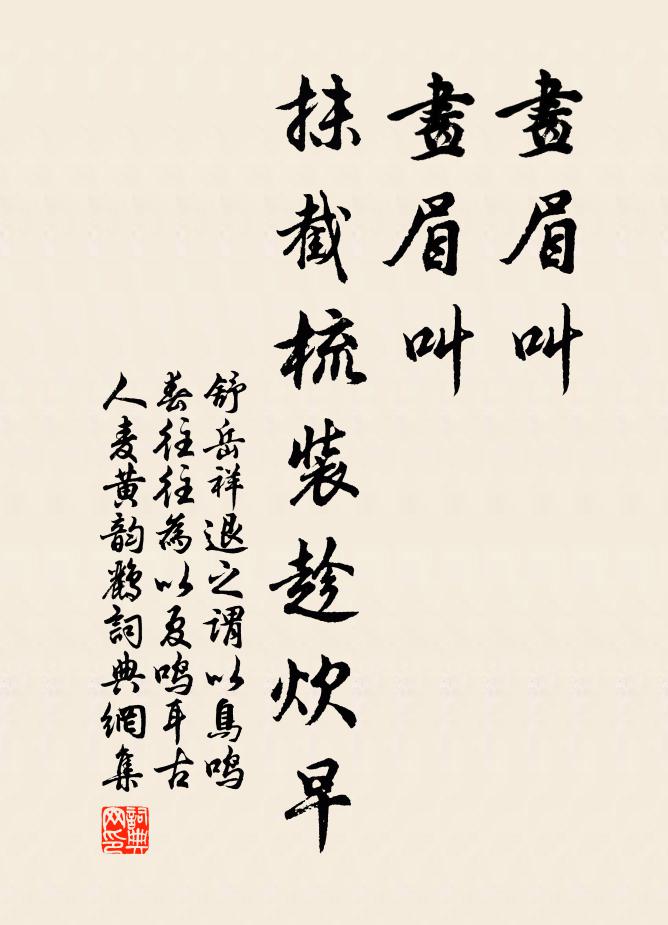 畫眉叫
畫眉叫
抹截梳裝趁炊早
舒岳祥退之謂以鳥鳴
春往往為以夏鳴耳古
人麦黃韵鹂詞典網集
詞典
网印